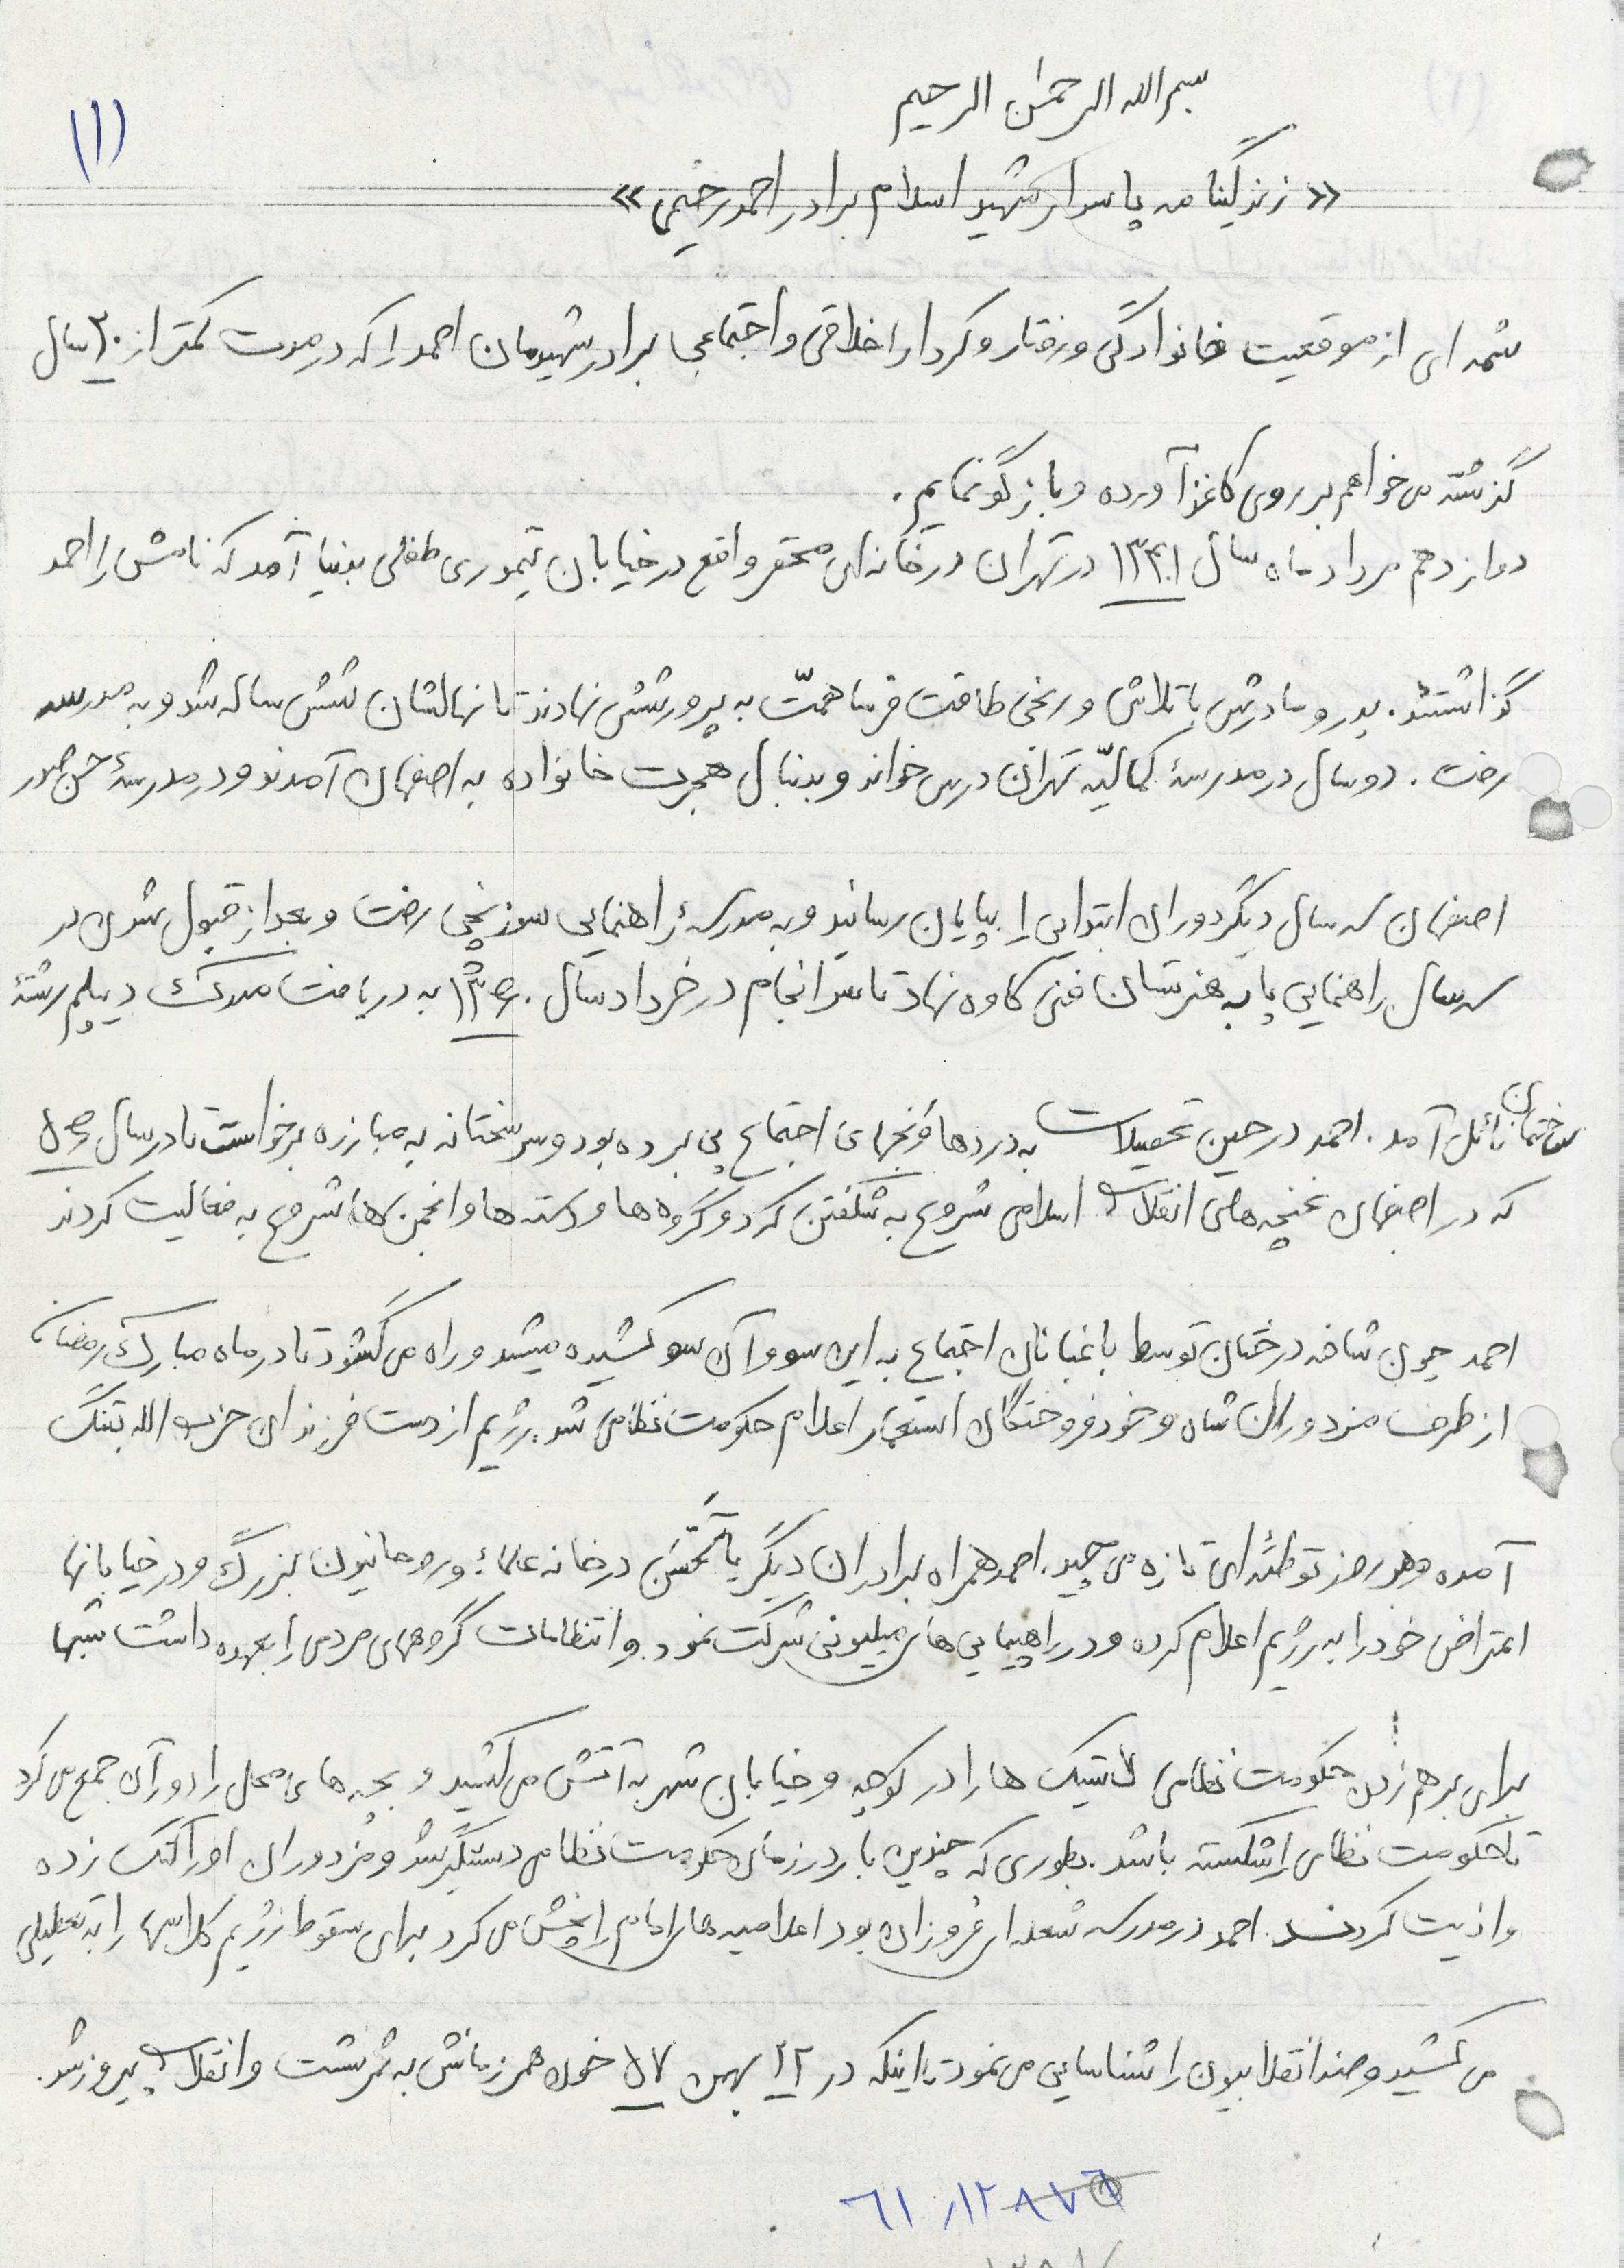 بسم الله الرحمن الرحیم
(۱)
« زندگینامه پاسدار شهید اسلام برادر احمد رحیمی »
شمه ای از موقعیت خانوادگی و رفتار و کردار اخلاقی و اجتماعی برادر شهیدمان احمد را که در مدت کمتر از ۲۰ سال
گذشته می خواهم بر روی کاغذ آورده و بازگو نمایم.
دوازدهم مرداد ماه سال ۱۳۴۱ در تهران در خانه ای محقر واقع در خیابان تیموری طفلی بدنیا آمد که نامش را احمد
گذاشتند. پدر و مادرش با تلاش و رنجی طاقت فرسا همّت به پرورشش نهادند تا نهالشان شش ساله شد و به مدرسه
رفت. دو سال در مدرسهٔ کمالیّه تهران درس خواند و بدنبال هجرت خانواده به اصفهان آمدند و در مدرسهٔ حسن صدر
اصفهان سه سال دیگر دوران ابتدایی را بپایان رسانید و به مدرسهٔ راهنمایی سوزنچی رفت و بعد از قبول شدن در
سه سال راهنمایی پا به هنرستان فنی کاوه نهاد تا سرانجام در خرداد سال ۱۳۵۹ به دریافت مدرک دیپلم رشتهٔ
ساختمان نائل آمد. احمد در حین تحصیلات به دردها و رنجهای اجتماع پی برده بود و سرسختانه به مبارزه برخواست تا در سال ۵۶
که در اصفهان غنچه های انقلاب اسلامی شروع به شکفتن کرد و گروه ها و دسته ها و انجمن ها شروع به فعالیت کردند
احمد چون شاخه درختان توسط باغبانان اجتماع به این سو و آن سو کشیده میشد و راه می گشود تا در ماه مبارک رمضان
از طرف مزدوران شاه و خودفروختگان استعمار اعلام حکومت نظامی شد. رژیم از دست فرزندان حزب الله بتنگ
آمده و هر روز توطئه ای تازه می چید. احمد همراه برادران دیگر با تحّصن در خانه علماء و روحانیون بزرگ و در خیابانها
اعتراض خود را به رژیم اعلام کرده و در راهپیمایی های میلیونی شرکت نمود. و انتظامات گروههای مردمی را بعهده داشت شبها
برای برهم زدن حکومت نظامی لاستیک ها را در کوچه و خیابان شهر به آتش می کشید و بچه های محل را دور آن جمع می کرد
تا حکومت نظامی را شکسته باشد. بطوری که چندین بار در زمان حکومت نظامی دستگیر شد و مزدوران او را کتک زده
و اذیت کردند. احمد در مدرسه شعله ای فروزان بود اعلامیه های امام را پخش می کرد برای سقوط رژیم کلاسها را به تعطیلی
می کشید و ضد انقلابیون را شناسایی می نمود تا اینکه در ۲۲ بهمن ۵۷ خون همرزمانش به ثمر نشست و انقلاب پیروز شد.